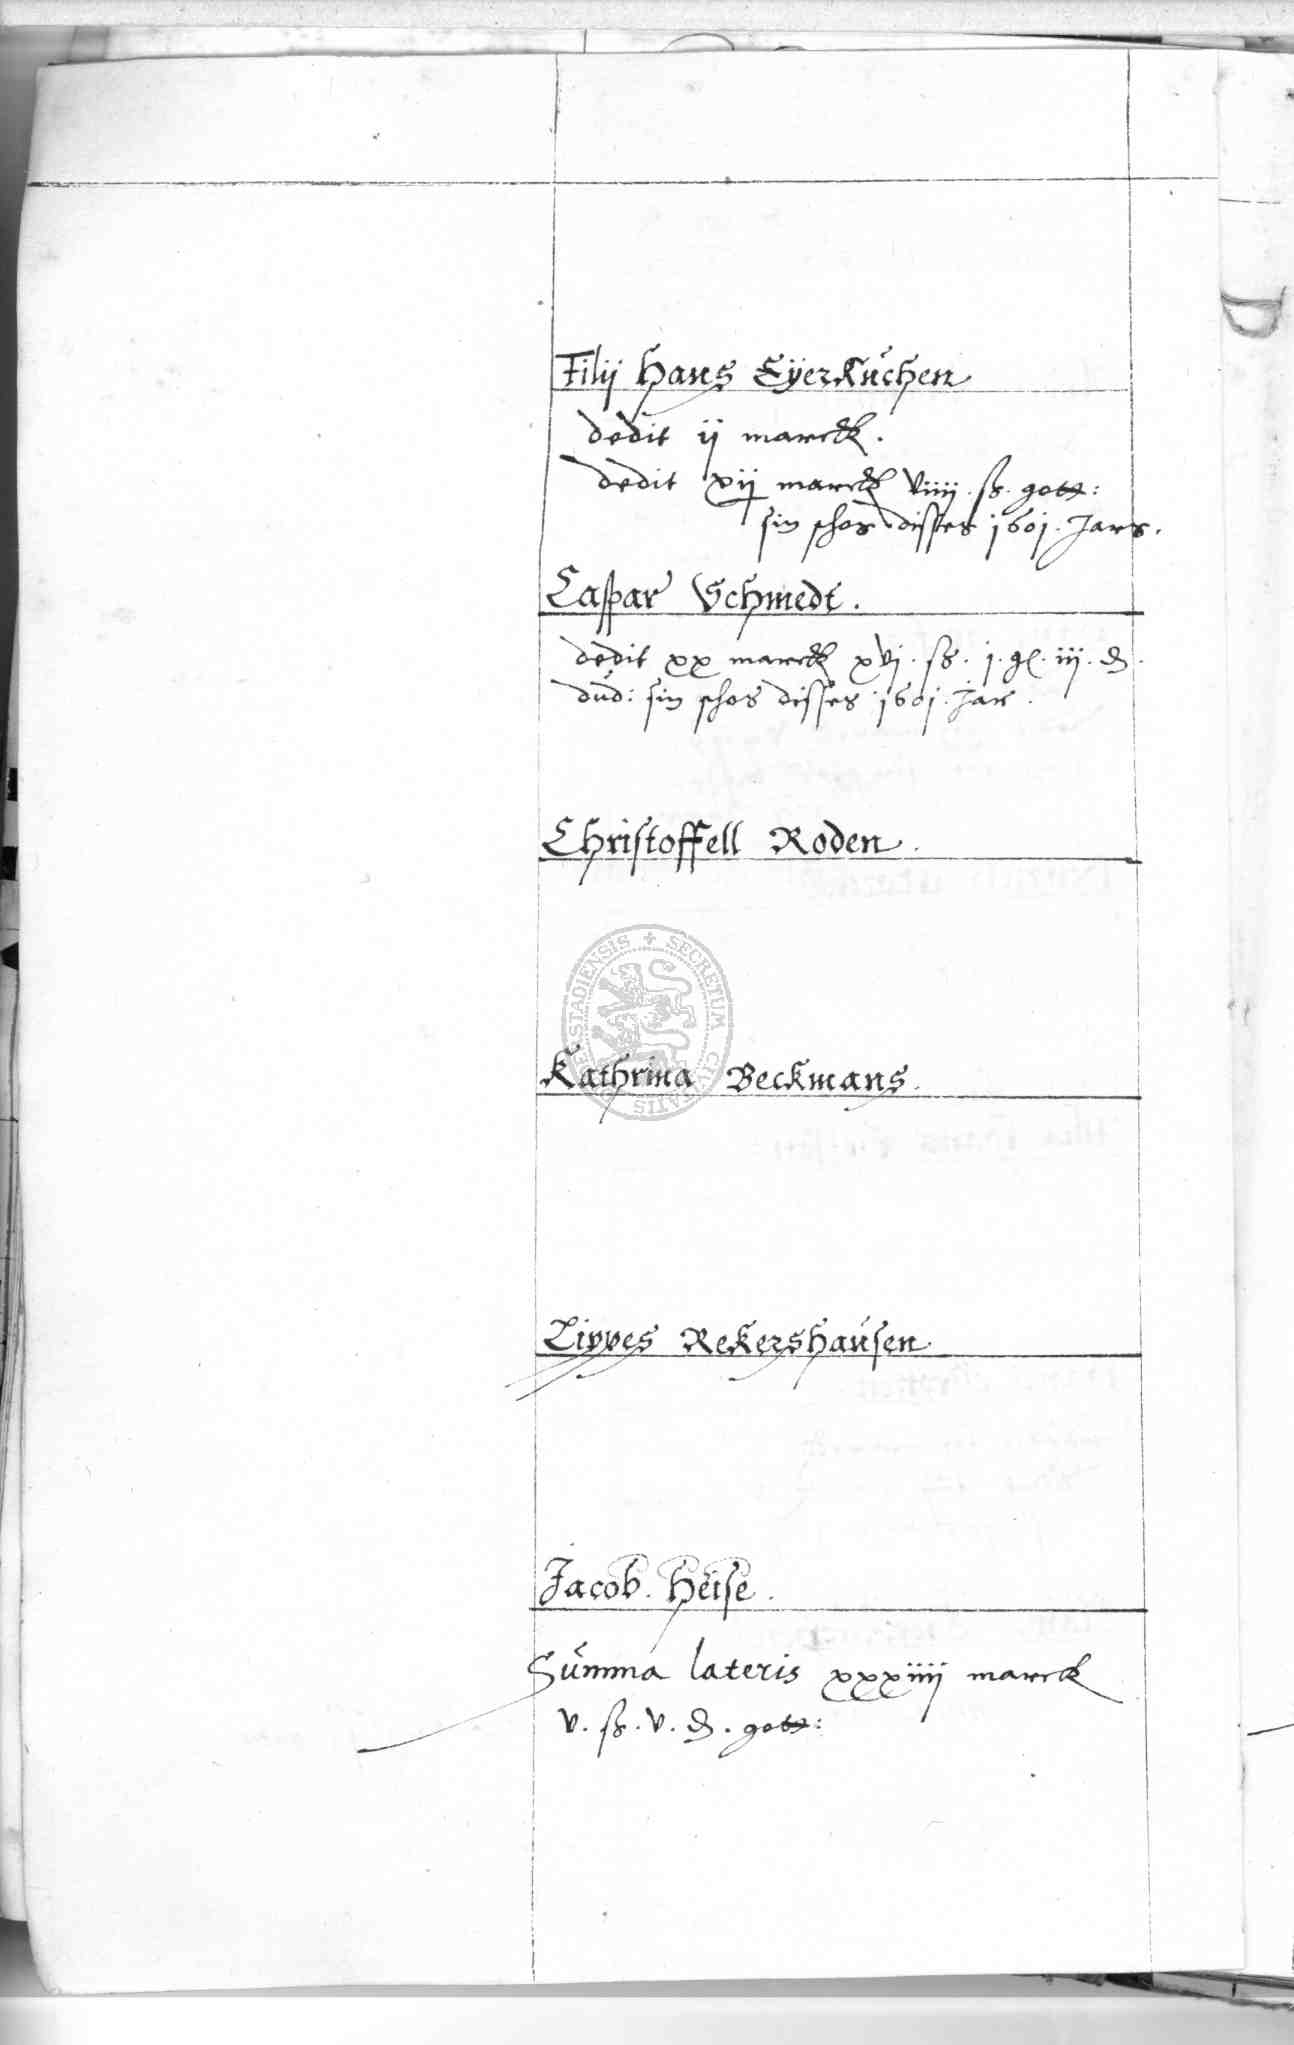 Filij Hans Eÿerkuchen
dedit ij marck.
dedit xij marck viiij. ß. gott:
sin schos disses 1601. Jars.
Caspar Schmedt.
dedit xx marck xvj. ß. j. gl. iij. d.
dud: sin schos disses 1601. Jar.
Christoffell Roden.
SECRETUM CIVITATIS
Kathrina Beckmans.
Lippes Rekershausen
Jacob. Heise.
Summa lateris xxxiiij marck
v. ß. v. d. gott: